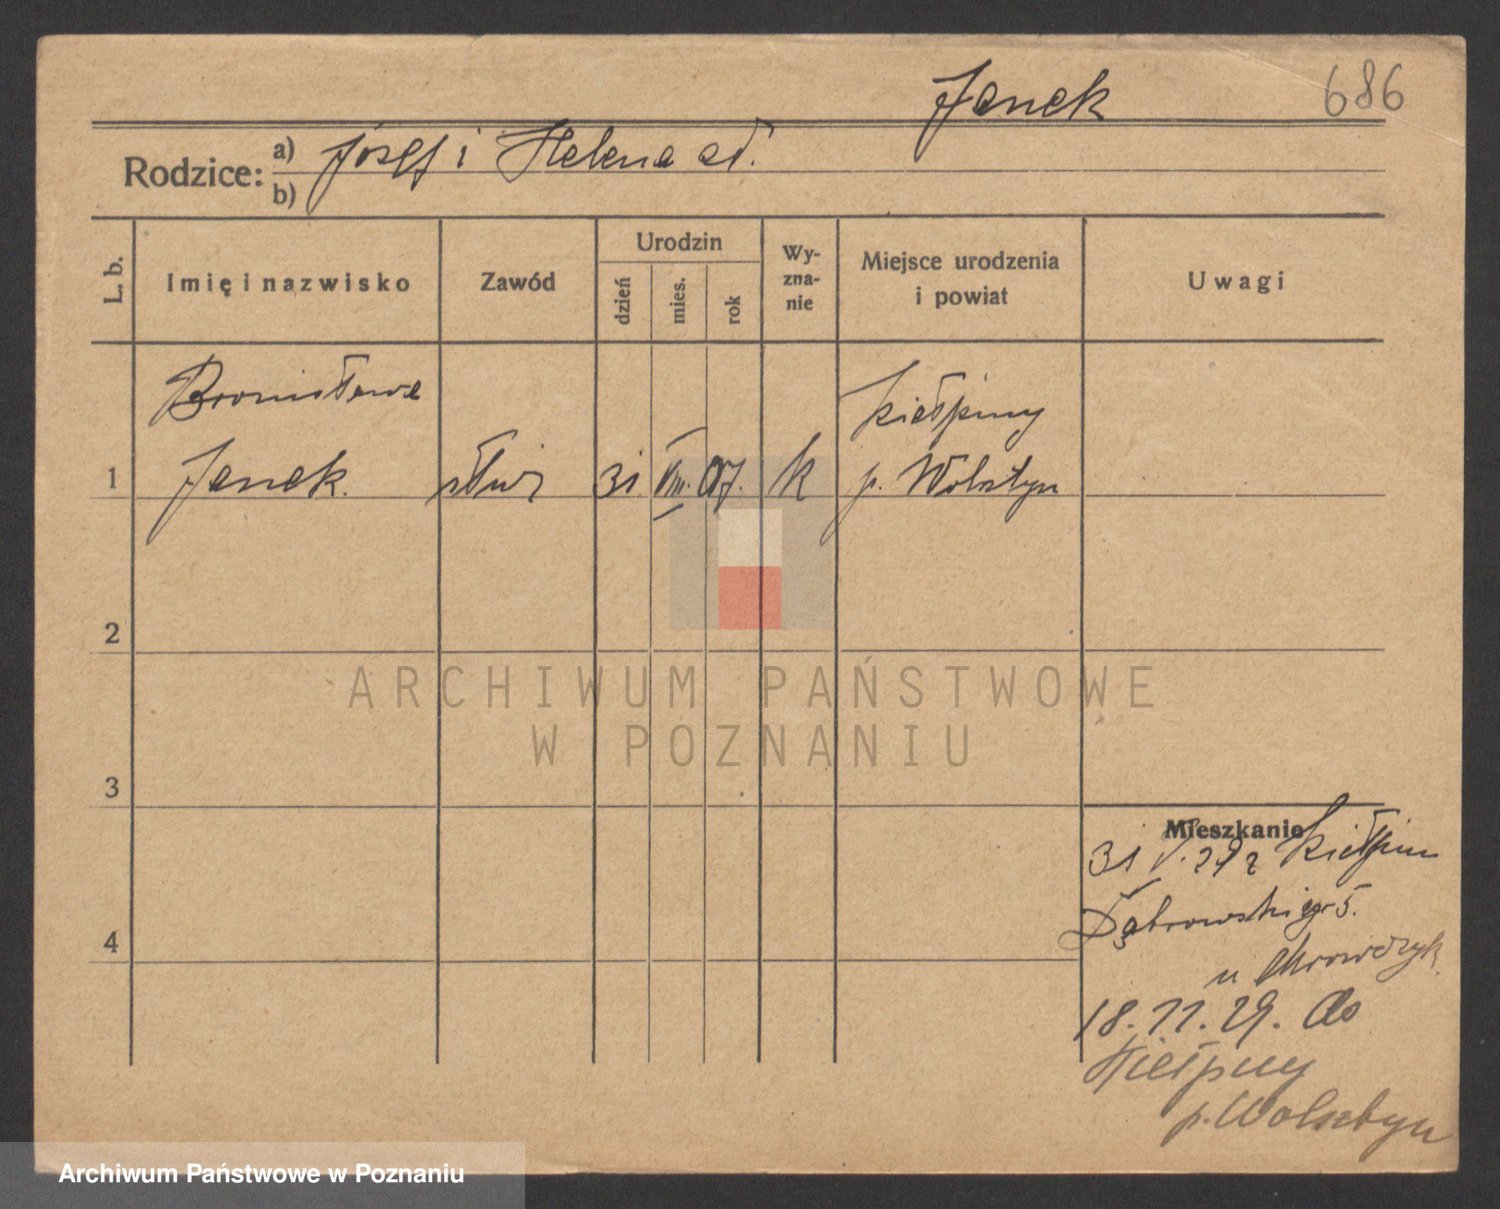 Janek
686
Rodzice:
a) Józef i Helena
b)
L. b.
Imię i nazwisko
Zawód
Urodzin
dzień
mies.
rok
Wy-
zna-
nie
Miejsce urodzenia
i powiat
Uwagi
Bronisława
Kiełpiny
1 Janek. służ 31 VIII. 07. k p. Wolsztyn
2
3
4
Mieszkanie
31 V. 29 z Kiełpin
Dąbrowskiego 5.
u Mrowczyk
18. 11. 29. do
Kiełpiny
p. Wolsztyn
ARCHIWUM PAŃSTWOWE
W POZNANIU
Archiwum Państwowe w Poznaniu